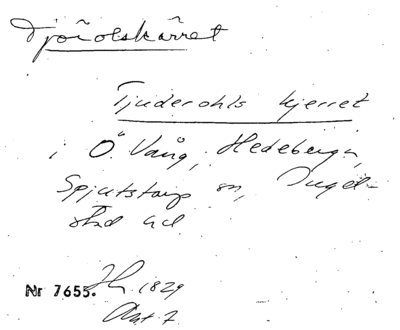 Tjörolskärret
Tjuderohls kjerret
i Ö. Vång, Hedeberga,
Spjutstorp sn, Ingel-
stad hd
Nr 7655. 1829
Akt 7